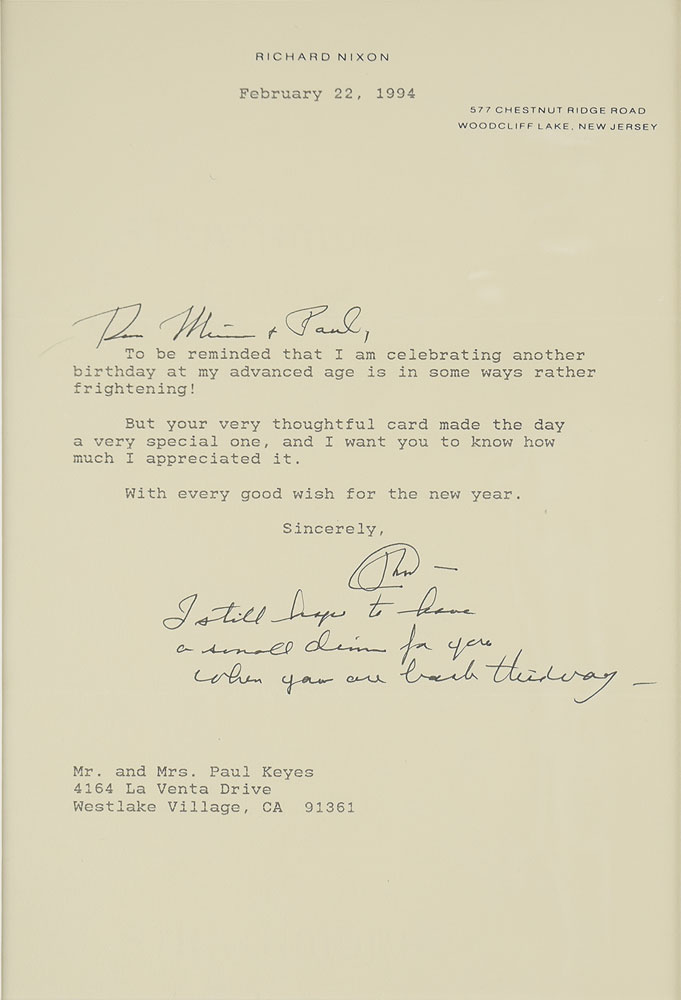 RICHARD NIXON
February 22, 1994
577 CHESTNUT RIDGE ROAD
WOODCLIFF LAKE, NEW JERSEY
& Paul,
To be reminded that I am celebrating another
birthday at my advanced age is in some ways rather
frightening!
But your very thoughtful card made the day
a very special one, and I want you to know how
much I appreciated it.
With every good wish for the new year.
Sincerely,
I still hope to have
a small dinner for you
when you are back this way —
Mr. and Mrs. Paul Keyes
4164 La Venta Drive
Westlake Village, CA  91361